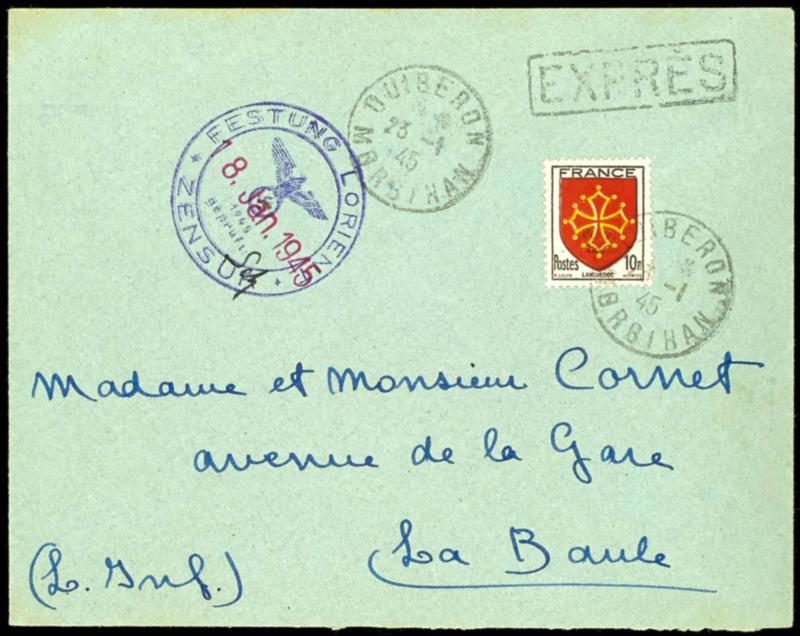 EXPRÈS
QUIBERON
23 -1
45
MORBIHAN
FESTUNG LORIENT
ZENSUR
1945
geprüft
18. Jan. 1945
FRANCE
Postes 10F
LANGUEDOC
QUIBERON
-1
45
MORBIHAN
Madame et Monsieur Cornet
avenue de la Gare
La Baule
(L. Inf.)